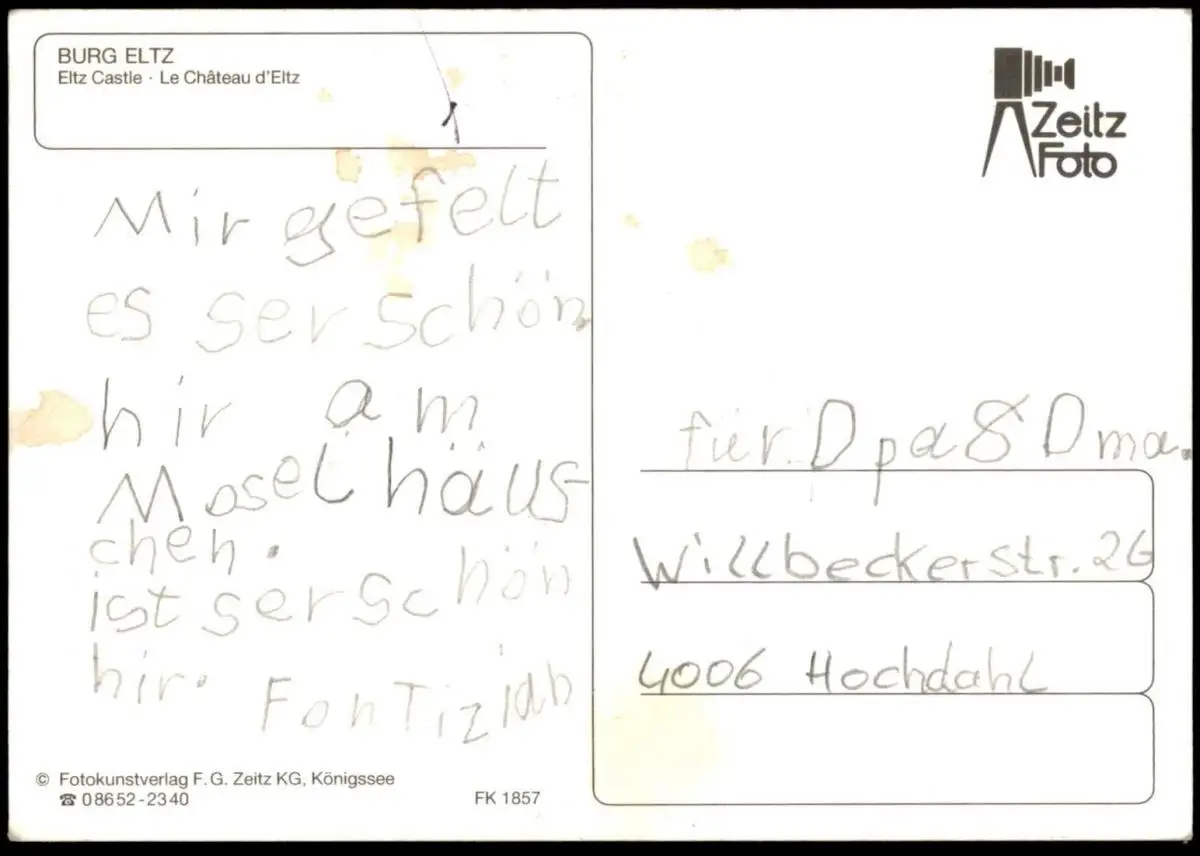 BURG ELTZ
Eltz Castle · Le Château d'Eltz
Zeitz
Foto
Mir gefelt
es ser schön
hir am
Moselhäus-
chen.
ist ser schön
hir. Fon Tizian
für Opa & Oma.
Willbeckerstr. 26
4006 Hochdahl
© Fotokunstverlag F. G. Zeitz KG, Königssee
☎ 08652-2340
FK 1857